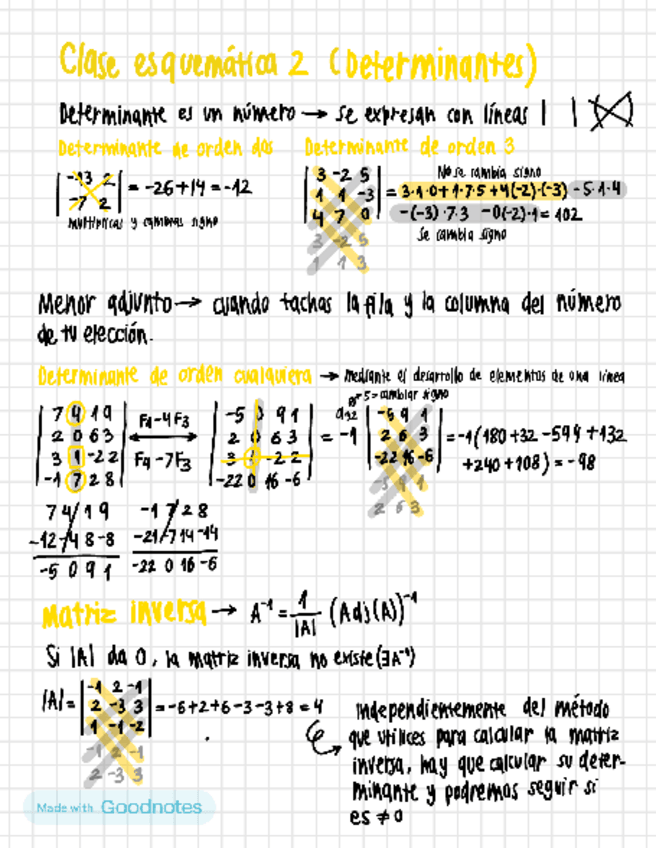 Clase esquemática 2 (Determinantes)
Determinante es un número → se expresan con líneas | |
Determinante de orden dos
Determinante de orden 3
-13 2
-7 2
= -26+14 = -12
multiplicas y cambias signo
3 -2 5
1 1 -3
4 7 0
3 -2 5
1 1 3
No se cambia signo
= 3·1·0+1·7·5+4(-2)·(-3) -5·1·4
-(-3)·7·3 -0(-2)·1 = 102
Se cambia signo
Menor adjunto → cuando tachas la fila y la columna del número
de tu elección.
Determinante de orden cualquiera → mediante el desarrollo de elementos de una línea
7 4 1 9
2 0 6 3
3 1 -2 2
-1 7 2 8
F1-4F3
F4-7F3
-5 0 9 1
2 0 6 3
3 1 -2 2
-22 0 16 -6
= -1
a32
5 = cambiar signo
-5 9 1
2 6 3
-22 16 -6
-5 9 1
2 6 3
= -1(180+32-594+132
+240+108) = -98
7 4 1 9
-12 -4 8 -8
-5 0 9 1
-1 7 2 8
-21 -7 14 -14
-22 0 16 -6
Matriz inversa → A⁻¹ = 1/|A| (Adj(A))⁻¹
Si |A| da 0, la matriz inversa no existe (∃A⁻¹)
|A| =
-1 2 -1
2 -3 3
1 -1 -2
-1 2 -1
2 -3 3
= -6+2+6-3-3+8 = 4
Independientemente del método
que utilices para calcular la matriz
inversa, hay que calcular su deter-
minante y podremos seguir si
es ≠ 0
Made with Goodnotes